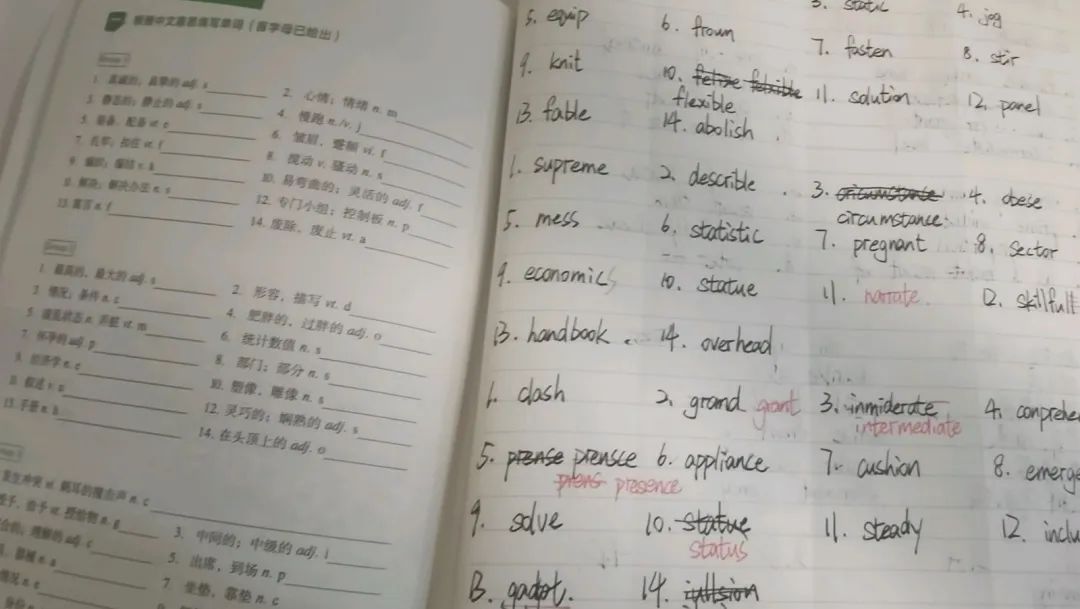 根据中文意思填写单词（首字母已给出）
Group 1
1. 真诚的，真挚的 adj. s
2. 心情；情绪 n. m
3. 静态的；静止的 adj. s
4. 慢跑 n./v. j
5. 装备，配备 vt. e
6. 皱眉，蹙额 vi. f
7. 扎牢；扣住 vt. f
8. 搅动 v. 骚动 n. s
9. 编织；编结 v. k
10. 易弯曲的；灵活的 adj. f
11. 解决；解决办法 n. s
12. 专门小组；控制板 n. p
13. 寓言 n. f
14. 废除，废止 vt. a
Group 2
1. 最高的，最大的 adj. s
2. 形容，描写 vt. d
3. 情况；条件 n. c
4. 肥胖的，过胖的 adj. o
5. 凌乱状态 n. 弄脏 vt. m
6. 统计数值 n. s
7. 怀孕的 adj. p
8. 部门；部分 n. s
9. 经济学 n. e
10. 塑像，雕像 n. s
11. 叙述 v. n
12. 灵巧的；娴熟的 adj. s
13. 手册 n. h
14. 在头顶上的 adj. o
发生冲突 vi. 刺耳的撞击声 n. c
授予，给予 vt. 授给物 n. g
3. 中间的；中级的 adj. i
理解的 adj. c
5. 出席，到场 n. p
器械 n. a
7. 坐垫，靠垫 n. c
情况 n. e
3. static 4. jog
5. equip 6. frown 7. fasten 8. stir
9. knit 10. felixe felxible 11. solution 12. panel
flexible
13. fable 14. abolish
1. supreme 2. describle 3. circumstance 4. obese
circumstance
5. mess 6. statistic 7. pregnant 8. sector
9. economics 10. statue 11. narrate 12. skillfull
13. handbook 14. overhead
1. clash 2. grand grant 3. inmiderate 4. comprehe
intermediate
5. prense prensce 6. appliance 7. cushion 8. emerge
prens presence
9. solve 10. statue 11. steady 12. inclu
status
13. 14.